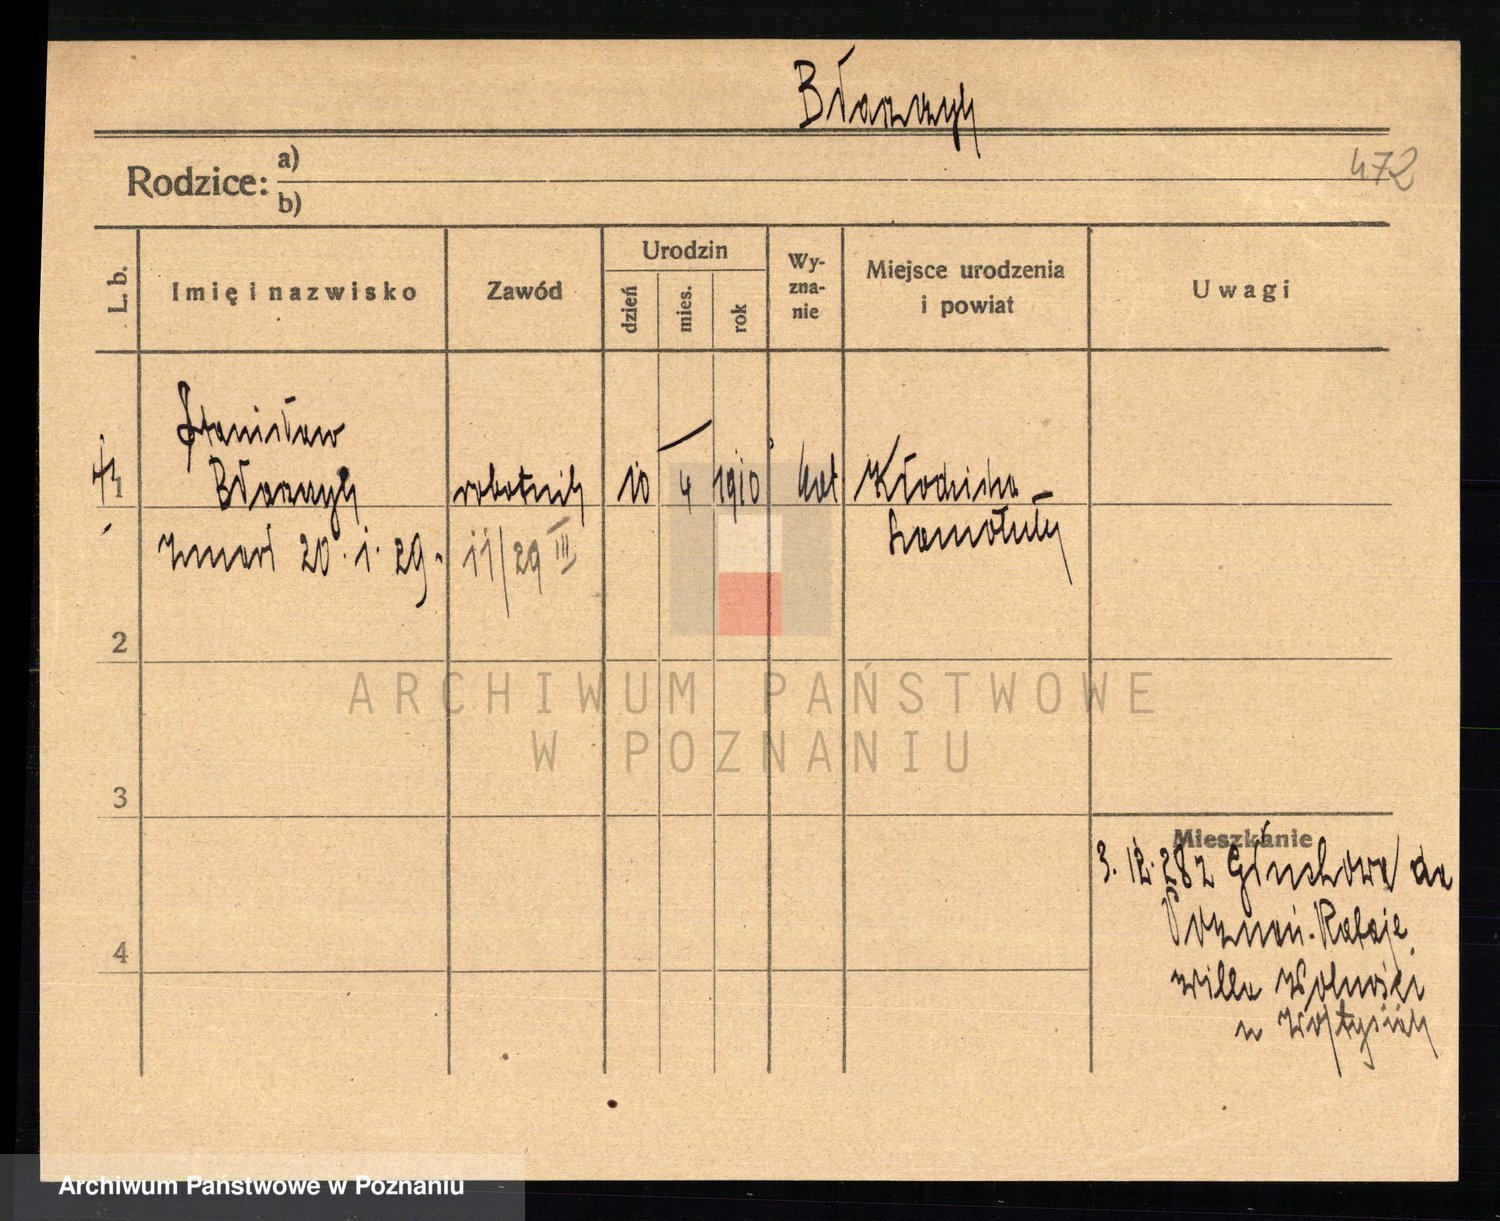 Błaszczyk
472
Rodzice: a)
b)
L. b.
Imię i nazwisko
Zawód
Urodzin
dzień
mies.
rok
Wy-
zna-
nie
Miejsce urodzenia
i powiat
Uwagi
1
Stanisław
Błaszczyk
robotnik
10
4
1910
kat
zmarł 20.1.29.
11/29 III
2
ARCHIWUM PAŃSTWOWE
W POZNANIU
3
4
Mieszkanie
3.12.28 z Głuchowa do
Poznań. Rataje
willa Wolności
Archiwum Państwowe w Poznaniu